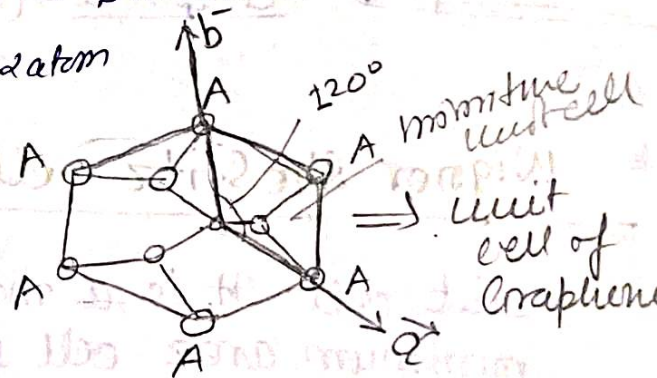 b̄
2 atom
A
120°
A
A
primitive
unit cell
⇒ unit
cell of
Graphene
A
A
a⃗
A